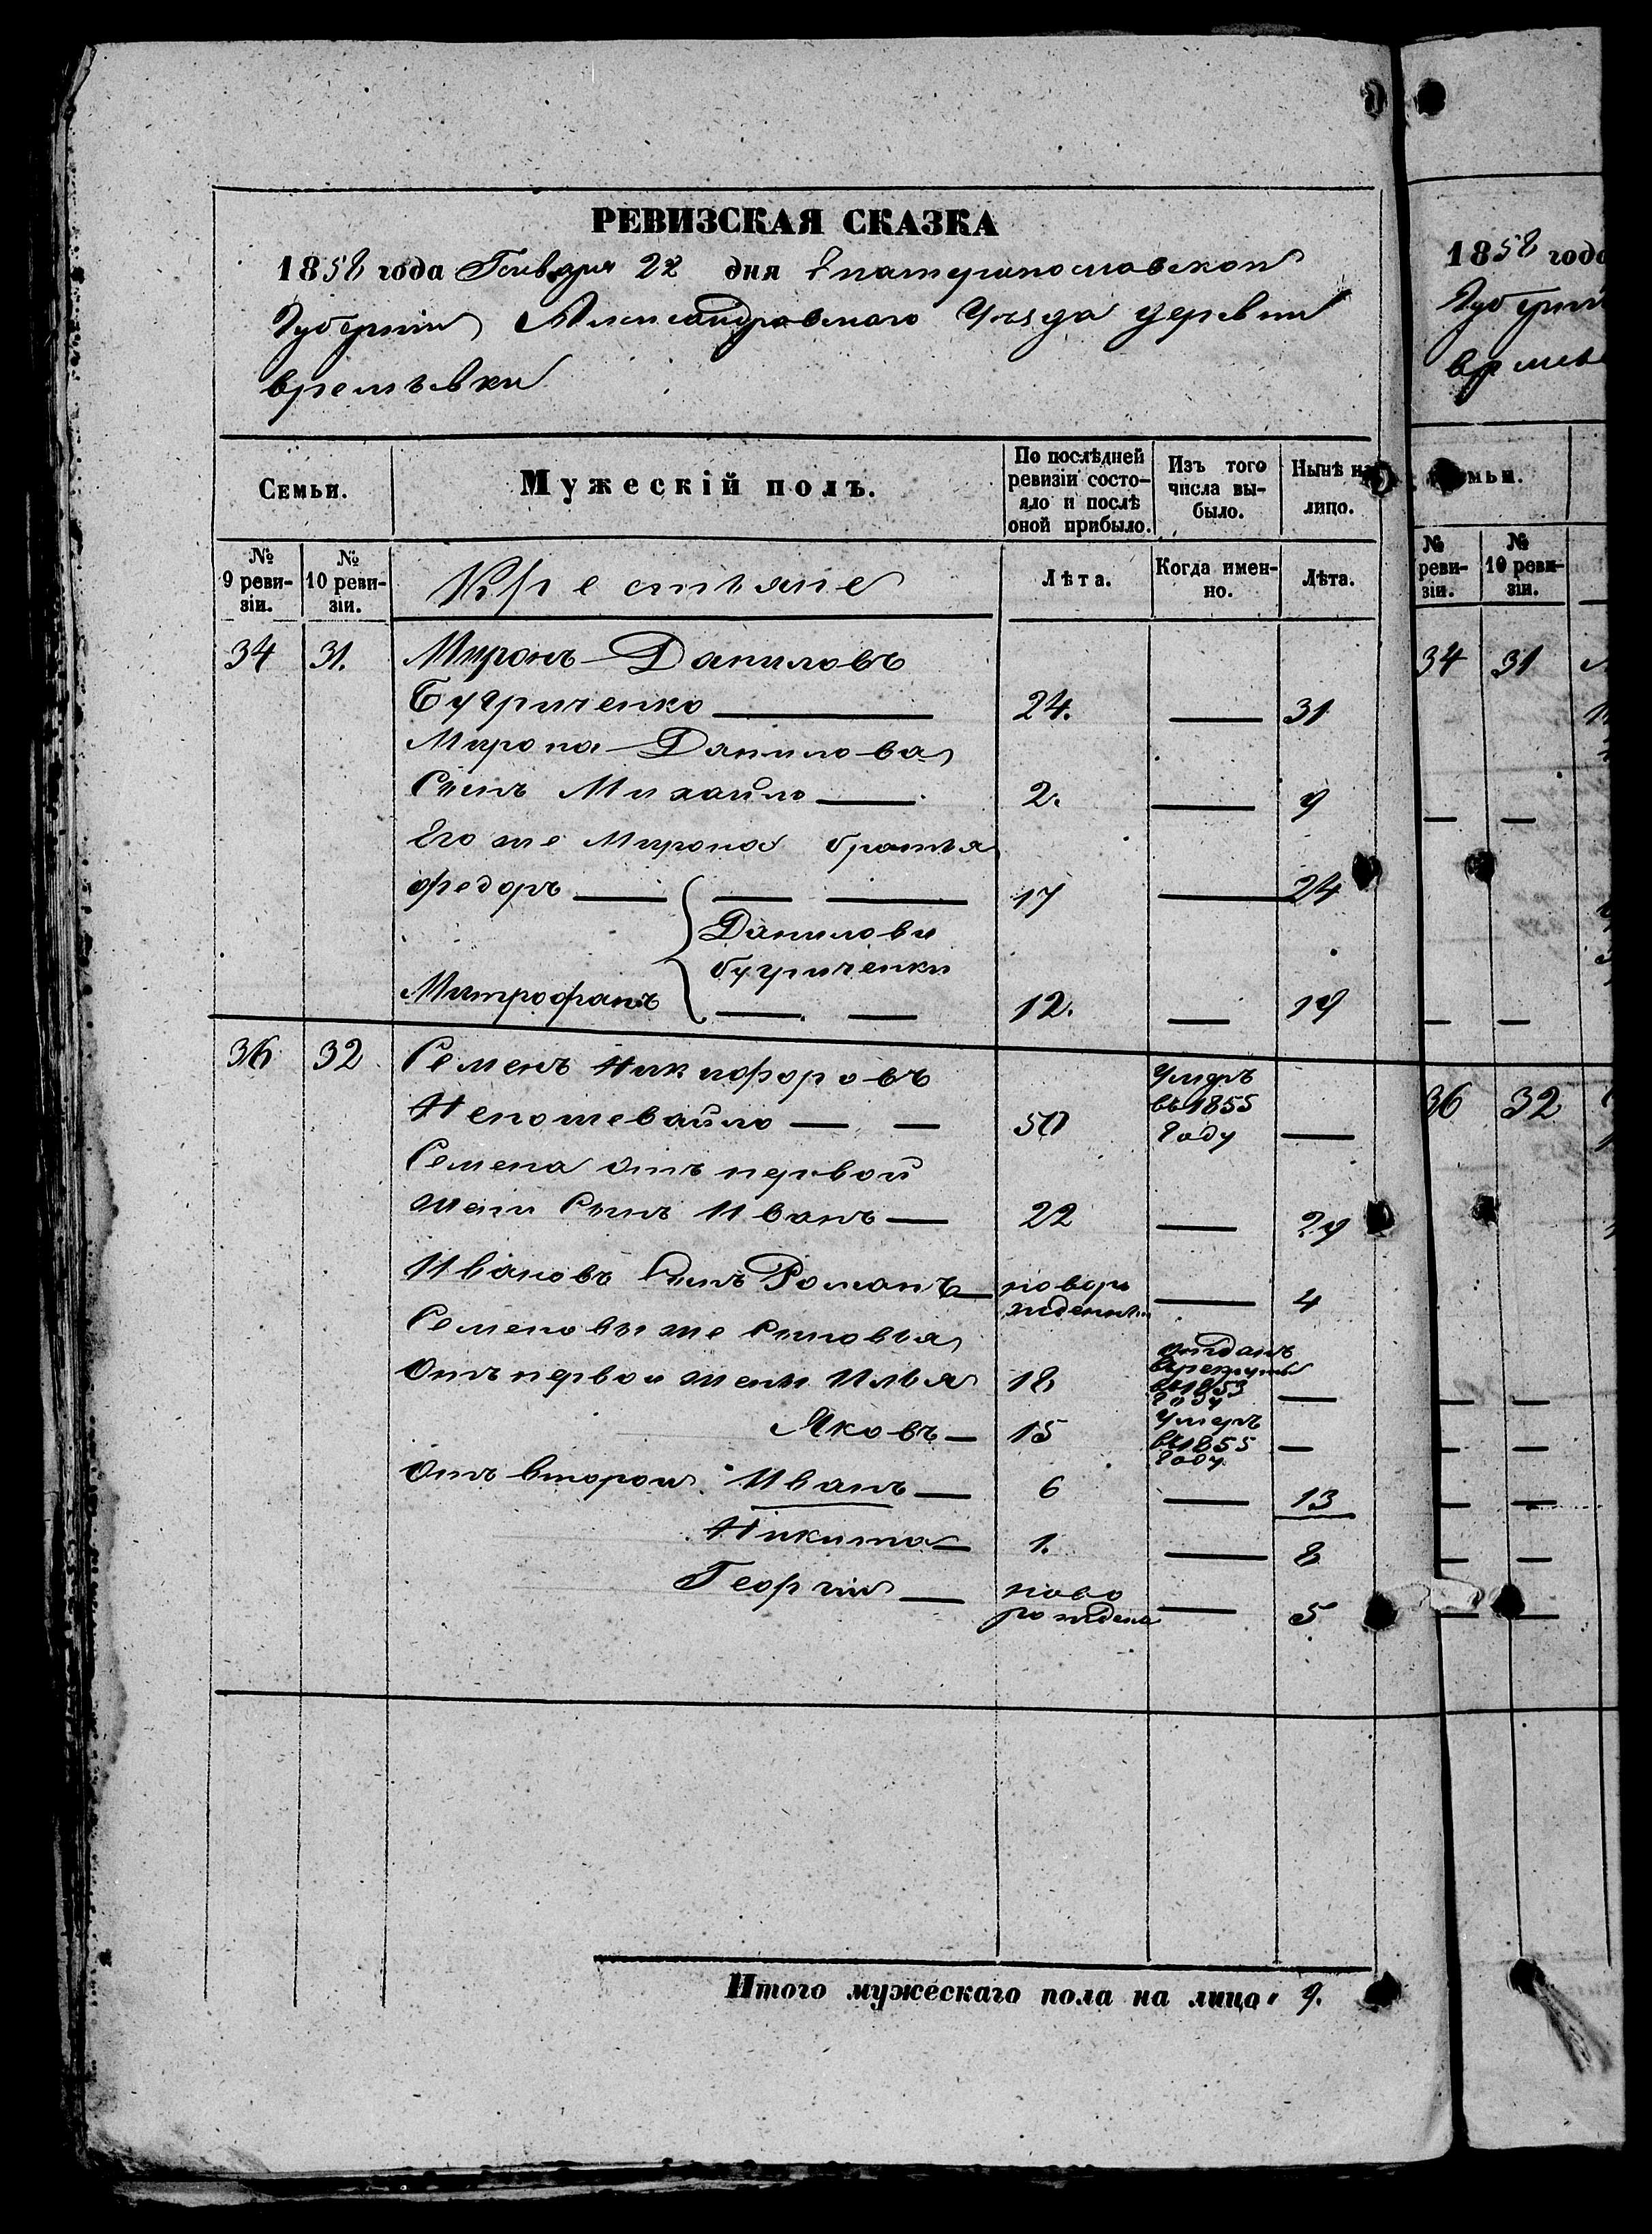 РЕВИЗСКАЯ СКАЗКА
1858 года Генваря 22 дня Екатеринославской
Губерніи Александровскаго Уѣзда деревни
Времѣвки
Семьи.
Мужескій полъ.
По послѣдней ревизіи состо-яло и послѣ оной прибыло.
Изъ того числа вы-было.
Нынѣ на лицо.
№ 9 реви-зіи.
№ 10 реви-зіи.
Крестьяне
Лѣта.
Когда имен-но.
Лѣта.
34 31. Миронъ Даниловъ
24. — 31
Мирона Данилова
Сынъ Михайло — 2. — 9
Его же Мирона братья
Федоръ — — — 17 — 24
Данилови
Митрофанъ — — 12. — 19
36 32 Семенъ Никифоровъ
Непошевайло — — 50 Умеръ въ 1855 Году —
Семена отъ первой
жени Сынъ Иванъ — 22 — 29
Ивановъ Сынъ Романъ — новоро жденный — 4
Семеновы же Сыновья
Отъ первой жены Илья 18 отданъ врекруты въ 1853 Году —
Яковъ — 15 Умеръ въ 1855 Году —
Отъ второй Иванъ — 6 — 13
Никита — 1. — 8
Георгій — ново рожденъ — 5
Итого мужескаго пола на лицо 9.
1858 года
Губерніи
мьи.
№ реви-зіи.
№ 10 реви-зіи.
34 31
— —
— —
36 32
— —
— —
— —
— —
— —